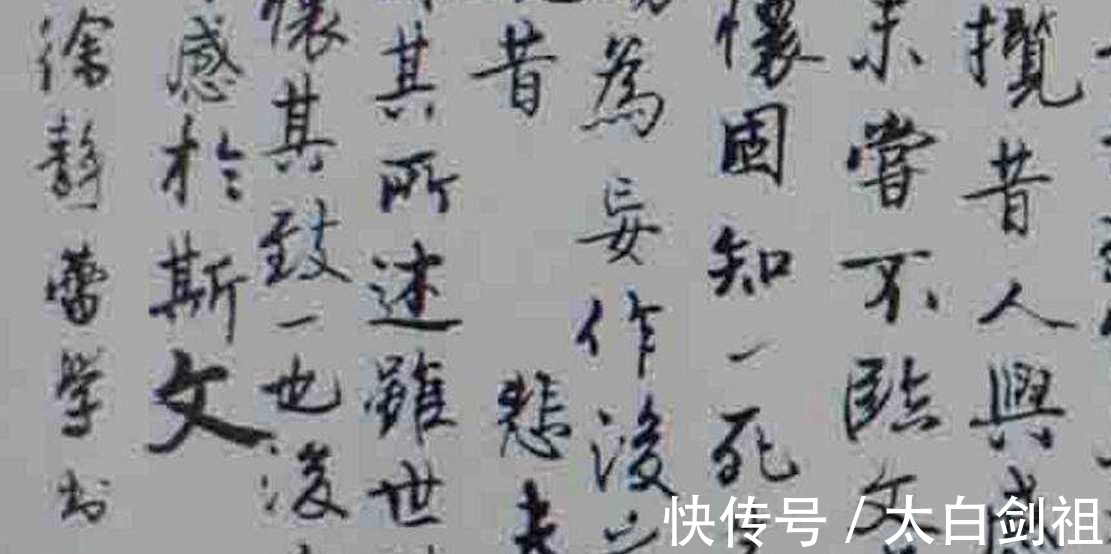 攬昔人興
未嘗不臨文
懷固知一死
為妄作後
昔悲夫
其所述雖世
懷其致一也後
感於斯文
徐靜蕾学书
快传号 / 太白剑祖